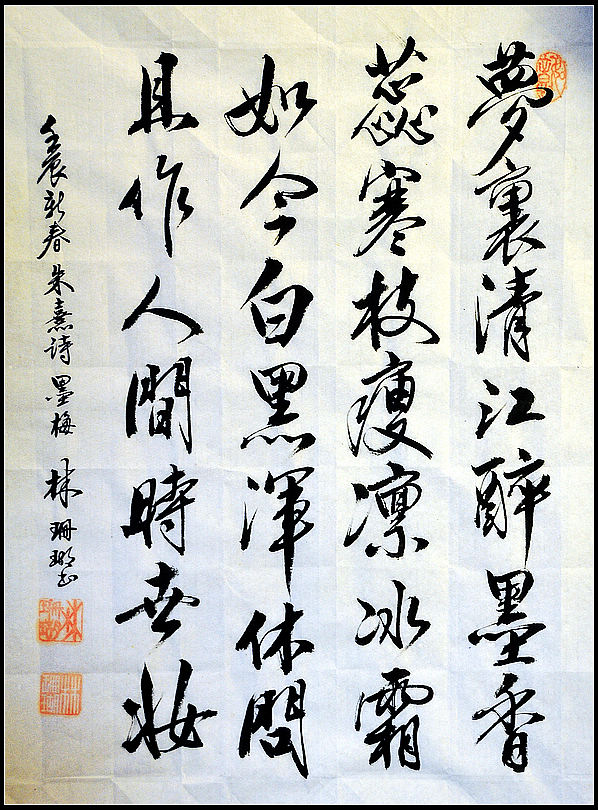 夢裏清江醉墨香
蕊寒枝瘦凛冰霜
如今白黑渾休問
且作人間時世妝
壬辰新春 朱熹詩 墨梅 林珊瑚書